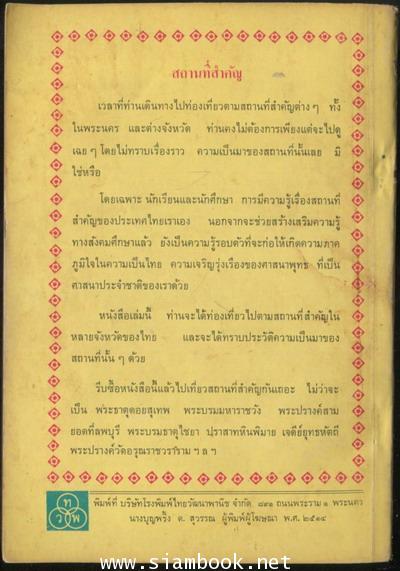 สถานที่สำคัญ
เวลาที่ท่านเดินทางไปท่องเที่ยวตามสถานที่สำคัญต่าง ๆ ทั้ง
ในพระนคร และต่างจังหวัด ท่านคงไม่ต้องการเพียงแต่จะไปดู
เฉย ๆ โดยไม่ทราบเรื่องราว ความเป็นมาของสถานที่นั้นเลย มิ
ใช่หรือ
โดยเฉพาะ นักเรียนและนักศึกษา การมีความรู้เรื่องสถานที่
สำคัญของประเทศไทยเราเอง นอกจากจะช่วยสร้างเสริมความรู้
ทางสังคมศึกษาแล้ว ยังเป็นความรู้รอบตัวที่จะก่อให้เกิดความภาค
ภูมิใจในความเป็นไทย ความเจริญรุ่งเรืองของศาสนาพุทธ ที่เป็น
ศาสนาประจำชาติของเราด้วย
หนังสือเล่มนี้ ท่านจะได้ท่องเที่ยวไปตามสถานที่สำคัญใน
หลายจังหวัดของไทย และจะได้ทราบประวัติความเป็นมาของ
สถานที่นั้น ๆ ด้วย
รีบซื้อหนังสือนี้แล้วไปเที่ยวสถานที่สำคัญกันเถอะ ไม่ว่าจะ
เป็น พระธาตุดอยสุเทพ พระบรมมหาราชวัง พระปรางค์สาม
ยอดที่ลพบุรี พระบรมธาตุไชยา ปราสาทหินพิมาย เจดีย์ยุทธหัตถี
พระปรางค์วัดอรุณราชวราราม ฯ ล ฯ
ท
ว พ
พิมพ์ที่ บริษัทโรงพิมพ์ไทยวัฒนาพานิช จำกัด ๘๙๑ ถนนพระราม ๑ พระนคร
นางบุญพริ้ง ต. สุวรรณ ผู้พิมพ์ผู้โฆษณา พ.ศ. ๒๕๑๔
www.siambook.net